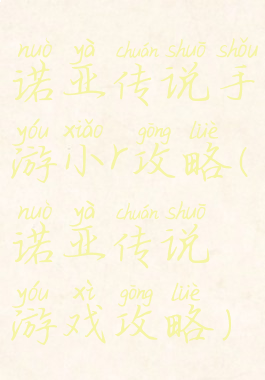 nuò yà chuán shuō shǒu
诺亚传说手
yóu xiǎo gōng lüè
游小r攻略(
nuò yà chuán shuō
诺亚传说
yóu xì gōng lüè
游戏攻略)